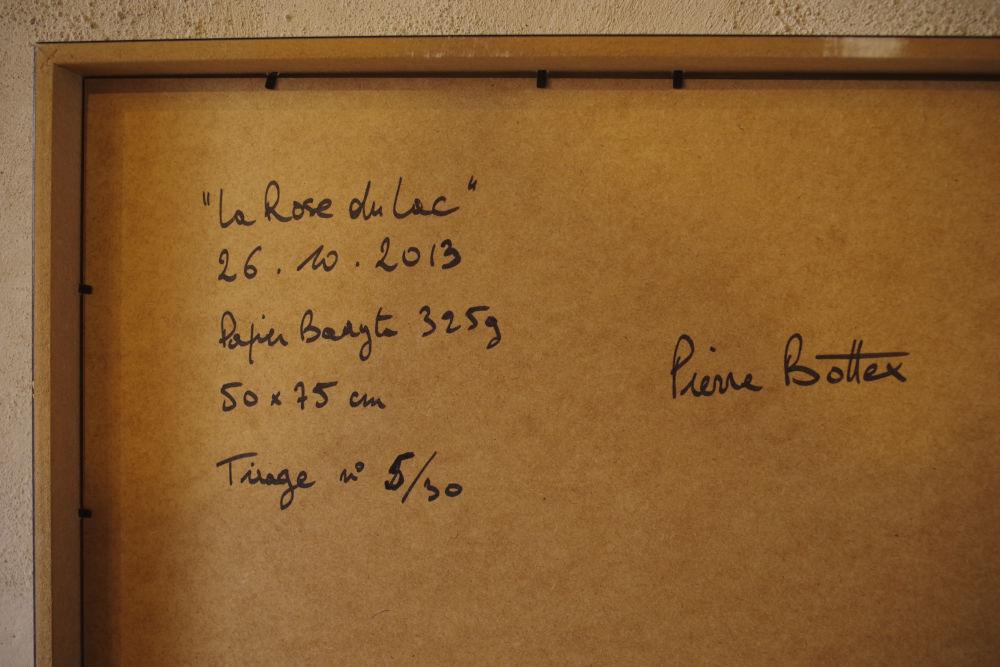 "La Rose du Lac"
26.10.2013
Papier Baryte 325g
50 x 75 cm
Tirage n° 5/30
Pierre Bottex